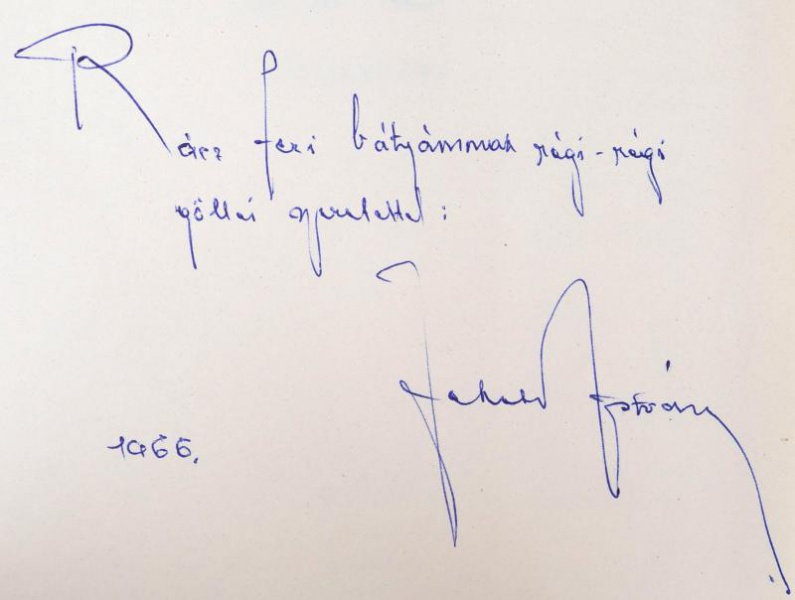 Rácz Feri bátyámnak régi-régi
göllei szeretettel:
István
1966.